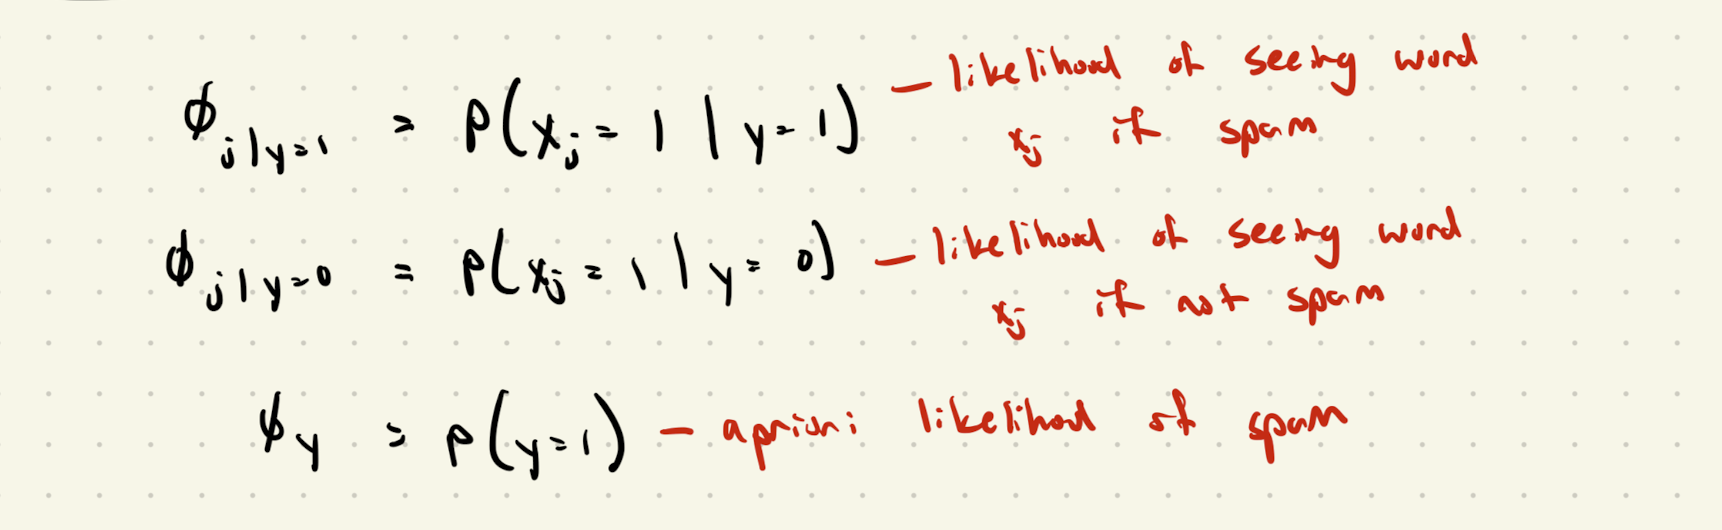 ϕ_{j|y=1} = p(x_j = 1 | y = 1) — likelihood of seeing word
x_j if spam
ϕ_{j|y=0} = p(x_j = 1 | y = 0) — likelihood of seeing word
x_j if not spam
ϕ_y = p(y=1) — a priori likelihood of spam